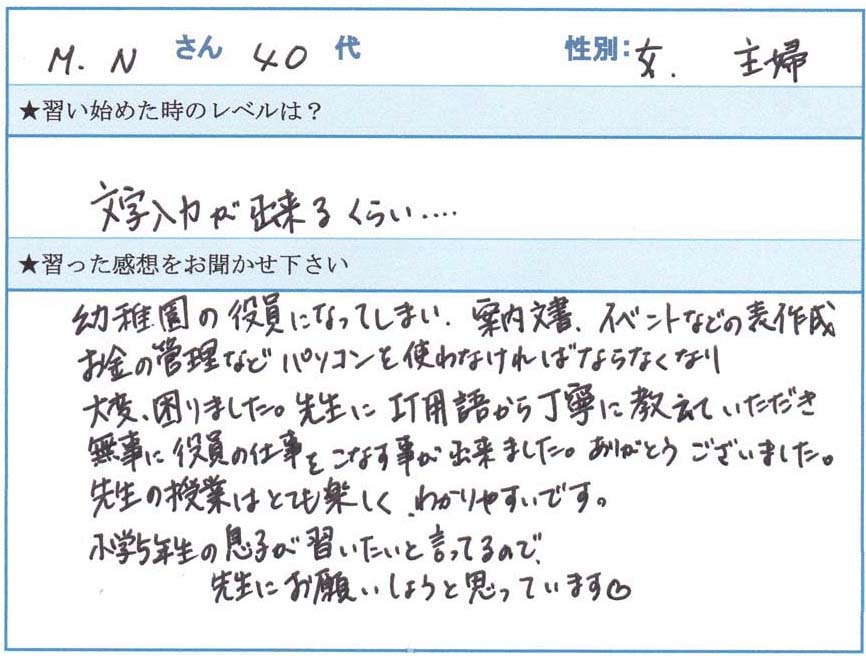 M. N さん 40 代 性別: 女. 主婦
★習い始めた時のレベルは？
文字入力が出来るくらい....
★習った感想をお聞かせ下さい
幼稚園の役員になってしまい、案内文書、イベントなどの表作成
お金の管理など パソコンを使わなければならなくなり
大変、困りました。先生に IT用語から丁寧に教えていただき
無事に役員の仕事をこなす事が出来ました。ありがとうございました。
先生の授業はとても楽しく、わかりやすいです。
小学5年生の息子が習いたいと言ってるので、
先生にお願いしようと思っています♡